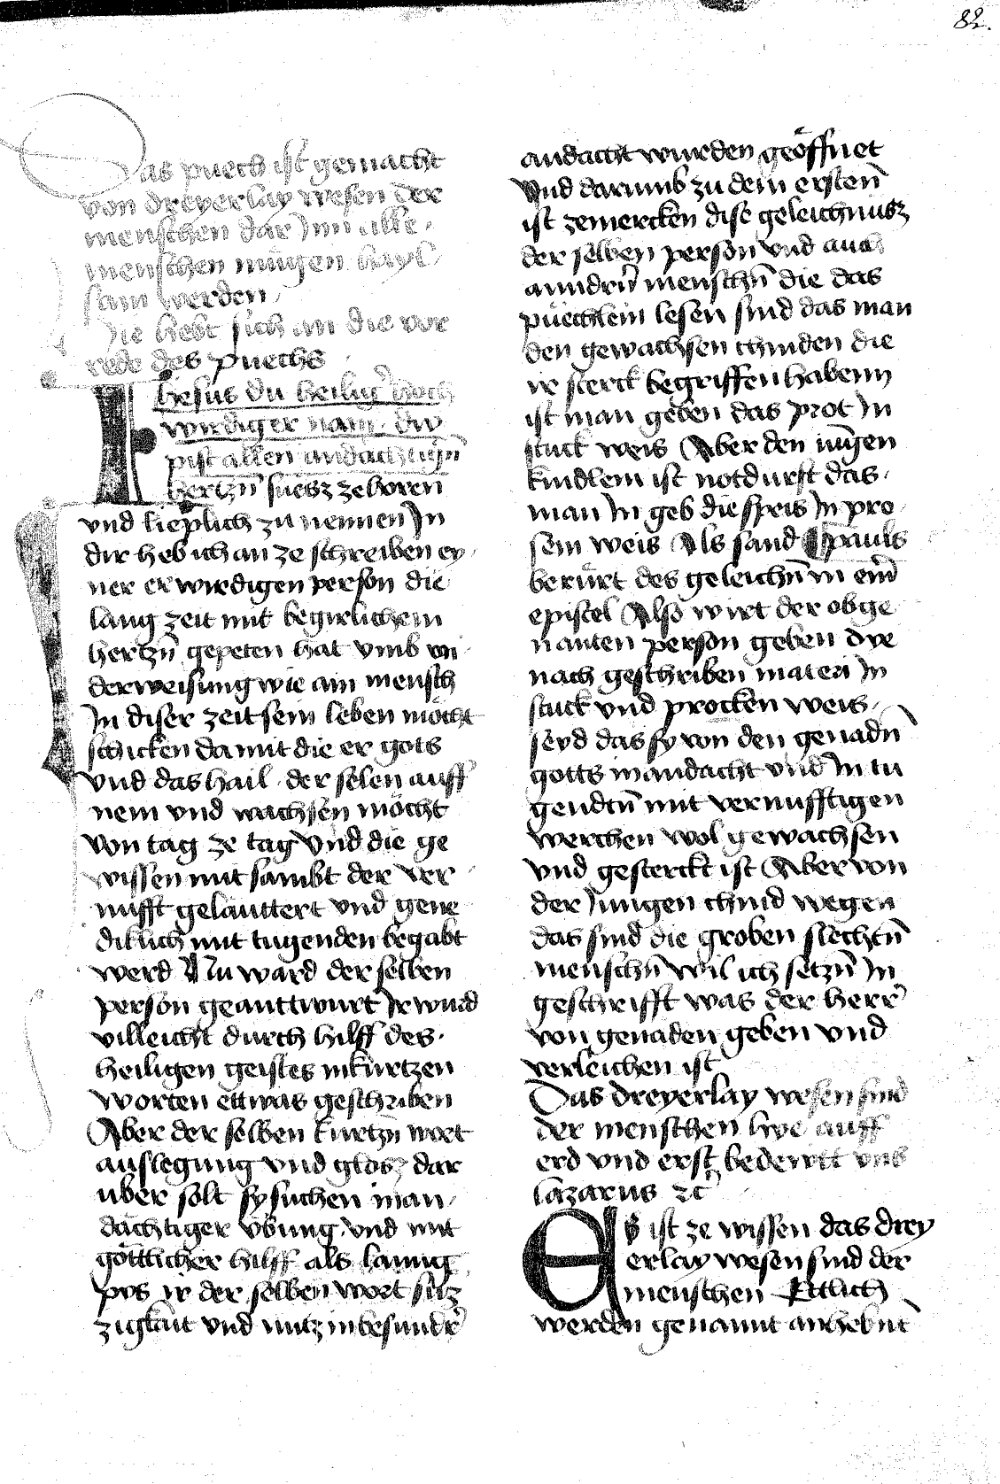 82.
Das puech ist gemacht
von dreyerlay wesen der
menschen dar Inn alle
menschen mügen hayl
sam werden
Hie hebt sich an die vor
rede des puechs
Ihesus du heiligr hoch
wirdiger nam · dw
pist allen andächtign̄
hertzn̄ suesz ze horen
vnd lieplich zu nennen In
dir heb ich an ze schreiben ey
ner erwirdigen person die
lang zeit mit begirlichem
hertzn̄ gepeten hat vmb vn
derweisung wie ain mensch
In diser zeit sein leben möcht
schicken da mit die er gots
vnd das hail · der selen auff
nem vnd wachsen möcht
von tag ze tag Vnd die ge
wissen mit sambt der ver
nufft gelauttert vnd gene
diklich mit tugenden begabt
werd Nu ward der selben
person geanttwurt Ir wurd
villeicht durch hilff des ·
heiligen geistes in kurtzen
worten ettwas geschriben
Aber der selben kurtzn̄ wort
auslegung vnd glosz dar
uber solt sy suchen in an
dächtiger vbung · vnd mit
göttlicher hilff als lanng
pys ir der selben wort süsz
zigkait vnd nutz in besundr̄
andacht wurden geöffnet
Vnd darumb zu dem ersten̄
ist zemercken dise geleichnüsz
der selben person vnd auch
anndrn̄ menschn̄ die das
püechlein lesen sind das man
den gewachsen chinden die
ir sterck begriffen habenn
ist man geben das prot In
stuck weis Aber den iungen
kindlem ist notdurft das ·
man In geb die speis In pro
sem weis Als sand Pauls
berürt des geleichn̄ in em̄
epistel Also wirt der obge
nanten person geben dye
nach geschriben materi In
stuck vnd procken weis ·
seyd das sy von den genadn̄
gotts in andacht vnd In tu
gendtn̄ mit vernufftigen
werchen wol gewachsen
vnd gesterckt ist Aber von
der Jungen chind wegen
das sind die groben slechtn̄
menschn̄ wil ich setzn̄ In
geschrifft was der herr̄
von genaden geben vnd
verleichen ist
Das dreyerlay wesen sind
der menschen hye auff
erd vnd erst bedewtt vns
lazarus zc
Es ist ze wissen das drey
erlay wesen sind der
menschen Ettlich
werden genannt anhebnt